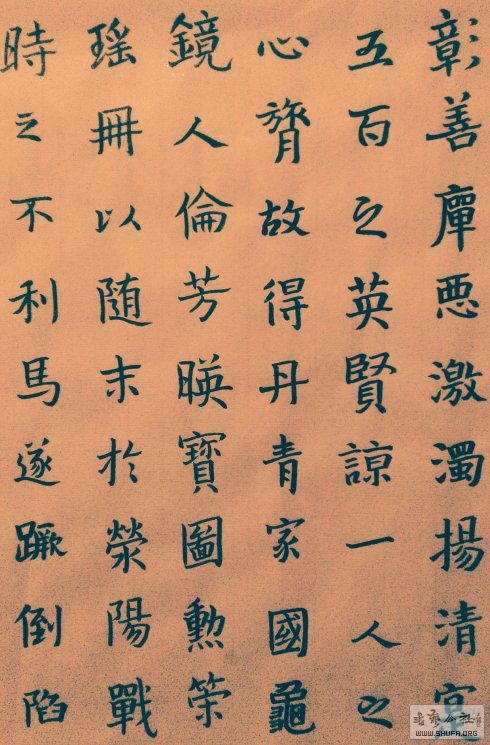 彰善癉悪激濁揚清寔
五百之英賢諒一人之
心膂故得丹青家國龜
鏡人倫芳暎寶圖勲榮
瑶冊以随末於滎陽戰
時之不利馬遂蹶倒陷
WWW.SHUFA.ORG